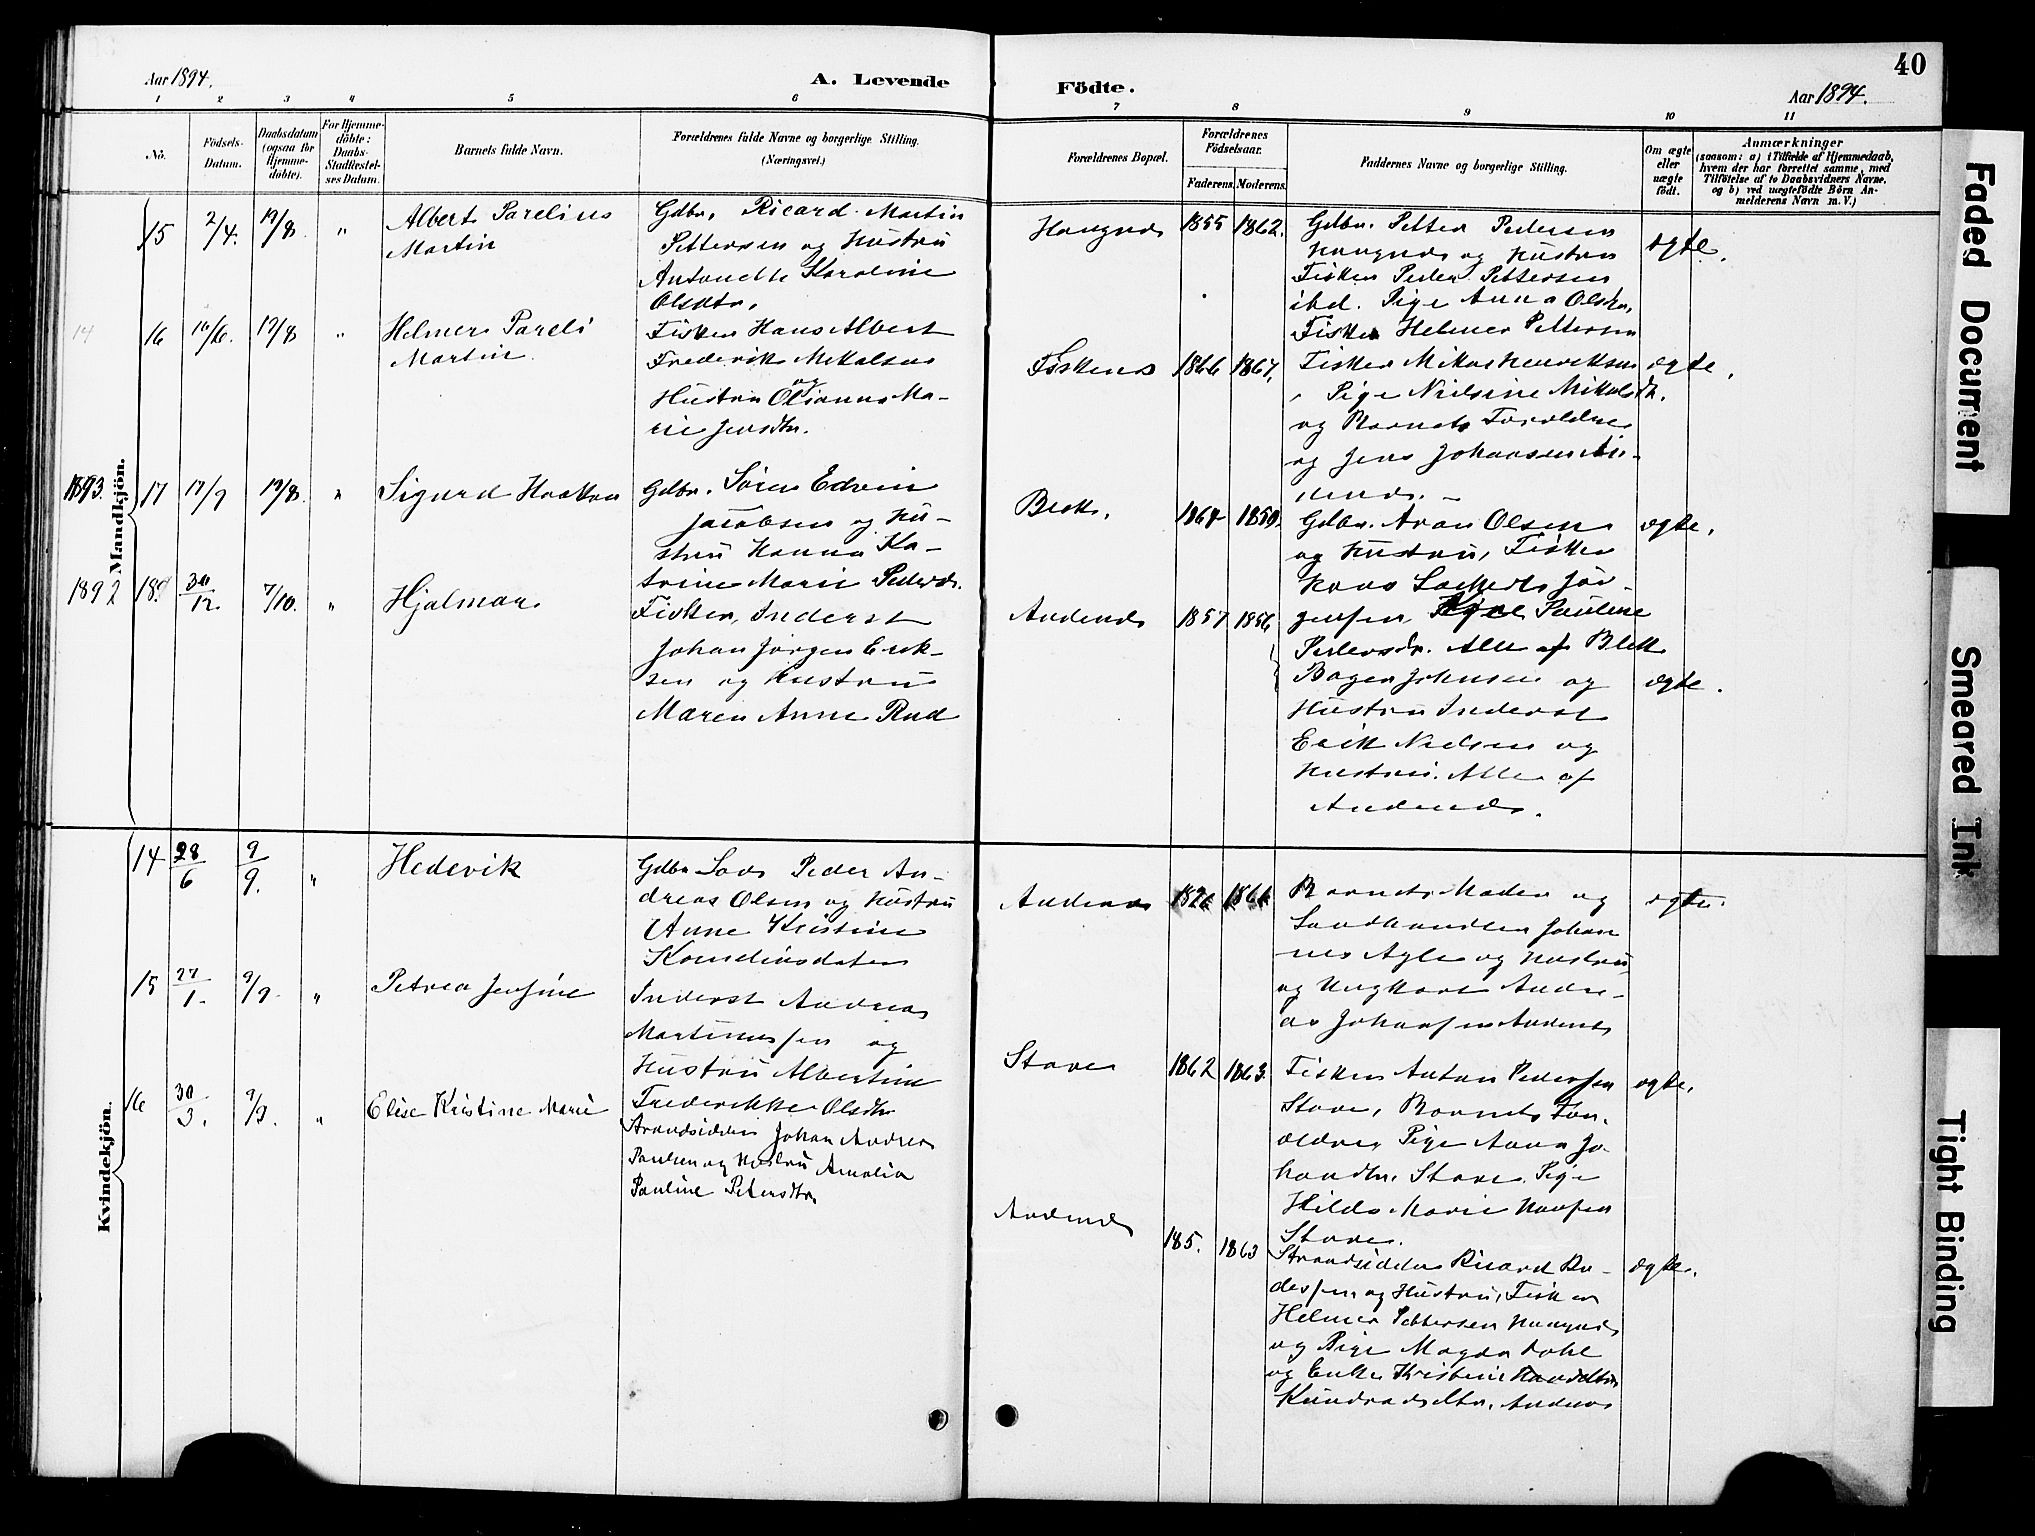 40
Aar 1894.
A. Levende
Födte.
Aar 1894.
1 2 3 4 5 6 7 8 9 10 11
No.
Födsels-
Datum.
Daabsdatum
(ogsaa for
Hjemme-
döbte).
For Hjemme-
döbte:
Daabs-
Stadfæstel-
ses Datum.
Barnets fulde Navn.
Forældrenes fulde Navne og borgerlige Stilling.
(Næringsvei.)
Forældrenes Bopæl.
Forældrenes
Födselsaar.
Faderens. Moderens.
Faddernes Navne og borgerlige Stilling.
Om ægte
eller
uægte
födt.
Anmærkninger
(saasom: a) i Tilfælde af Hjemmedaab,
hvem der har forrettet samme, med
Tilföielse af to Daabsvidners Navne,
og b) ved uægtefödte Börn An-
melderens Navn m. V.)
Mandkjön.
15 2/4. 19/8 "
Albert Parelius
Martin
Gdbr. Ricard Martin
Pettersen og Hustru
Antonette Karoline
Olsdtr.
Haugnes 1855 1862.
Gdbr. Petter Pedersen
Haugnes og Hustru
Fisker Peder Pettersen
ibd. Pige Anna Olsdtr,
Fisker Helmer Pettersen
ægte.
14
16 16/6. 19/8 "
Helmer Pareli
Martin
Fisker Hans Albert
Frederik Mikalsen
og
Hustru Olianna Ma-
rie Jensdtr.
1866 1867.
Fisker Mikal Henriksen
Pige Nielsine Mikalsdtr.
og Barnets Forældre
og Jens Johansen An-
denes. –
ægte.
1893. 17 17/9 19/8. "
Sigurd Haakon
Gdbr. Sören Edvin
Jacobsen og Hu-
stru Hanna Ka-
trine Marie Pedersdtr.
Bleik. 1864 1850.
Gdbr. Aron Olsen
og Hustru, Fisker
Hans Jör-
gensen, Pige Pauline
Pedersdr. Alle af Bleik
ægte.
1892 18. 30/12. 7/10. "
Hjalmar
Fisker, Inderst
Johan Jörgen Erik-
sen og Hustru
Maren Anne Rud
Andenes 1857 1856
Bager Johnsen og
Hustru Inderst
Erik Nielsen og
Hustru. Alle af
Andenes.
ægte.
Kvindekjön.
14 28/6 9/9. "
Hedevik
Gdbr Lars Peder An-
dreas Olsen og Hustru
Anne Kristine
Korneliusdatter
Andenes
Barnets Moder og
Landhandler Johan
nes Agle og Hustru
og Ungkarl Andre-
as Johansen Andenes
ægte.
15 27/1. 9/9. "
Petrea Jensine
Inderst Andreas
Martinussen og
Hustru Albertine
Frederikke Olsdtr
Stave 1862 1863.
Fisker Anton Pedersen
Stave, Barnets For-
ældre, Pige Anna Jo-
hansdtr. Stave. Pige
Hilda Marie Hansen
Stave.
ægte.
16 30/3. 9/9. "
Elise Kristine Marie
Strandsidder Johan Andreas
Paulsen og Hustru Amalia
Pauline Petersdtr
Andenes 185. 1863
Strandsidder Ricard
og Hustru, Fisker
Helmer Pettersen Haugnes
og Pige Magda Dahl
og Enke Kristine
Kundradsdtr. Andenes
ægte.
Faded Document
Smeared Ink
Tight Binding